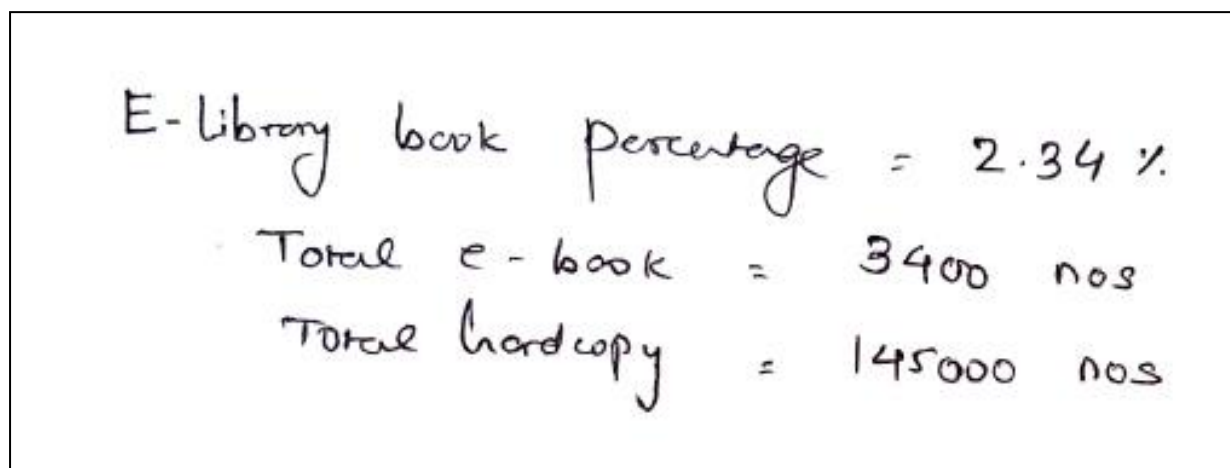 E-library book percentage = 2.34 %
Total e-book = 3400 nos
Total hardcopy = 145000 nos